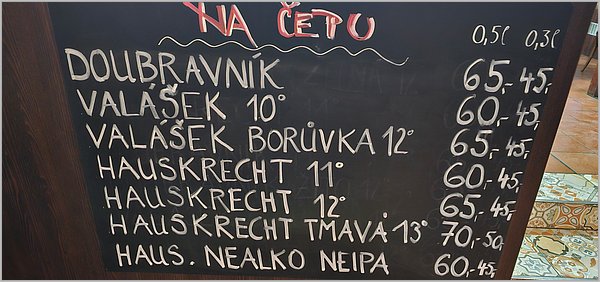 NA ČEPU 0,5l 0,3l
DOUBRAVNÍK 65,- 45,-
VALÁŠEK 10° 60,- 45,-
VALÁŠEK BORŮVKA 12° 65,- 45,-
HAUSKRECHT 11° 60,- 45,-
HAUSKRECHT 12° 65,- 45,-
HAUSKRECHT TMAVÁ 13° 70,- 50,-
HAUS. NEALKO NEIPA 60,- 45,-